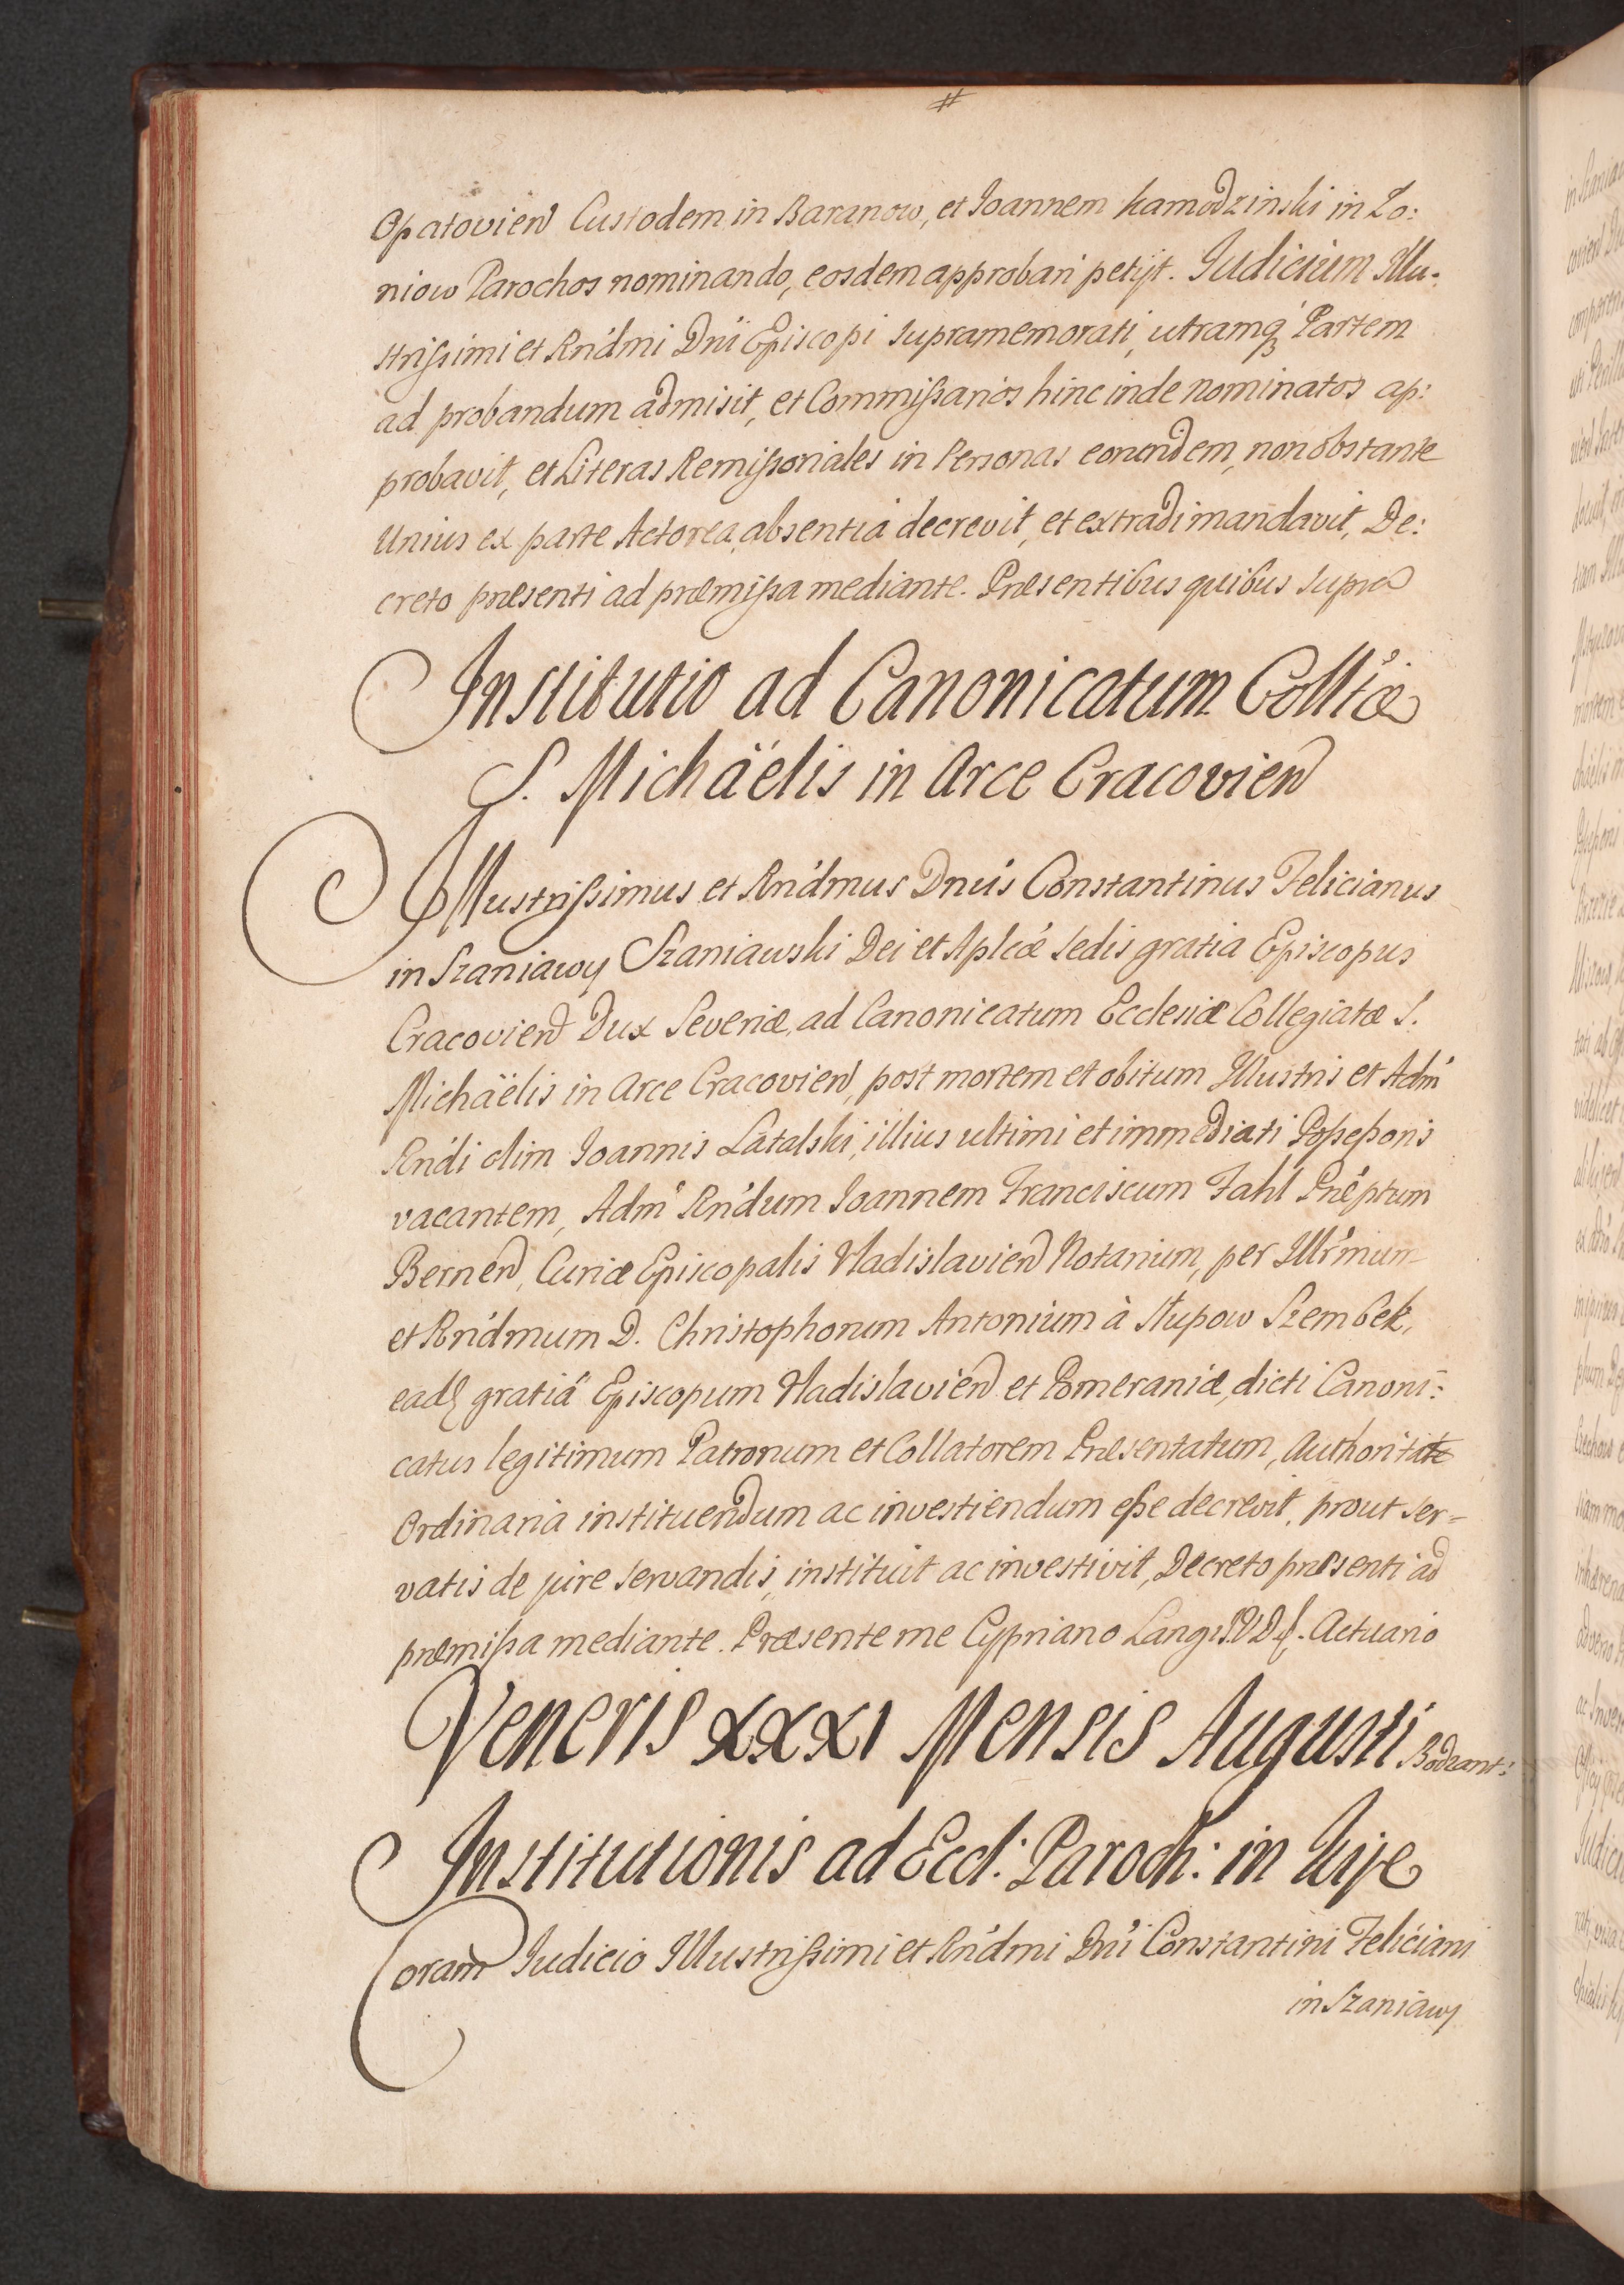 #
Opatovien̄ Custodem in Baranow, et Joannem Kamodzinski in Ło:
niow Parochos nominando, eosdem approbari petijt. Judicium Illu-
strissimi et Rńdmi Dńi Episcopi supramemorati, utramq́ Partem
ad probandum admisit, et Commissarios hinc inde nominatos ap:
probavit, et Literas Remissoriales in Personas eorundem, non obstante
Unius ex parte Actorea absentiá decrevit, et extradi mandavit, De:
creto præsenti ad præmissa mediante. Præsentibus quibus supra
Institutio ad Canonicatum Collťæ
S. Michäelis in Arce Cracovien̄
Illustrissimus et Rńdmus Dnús Constantinus Felicianus
in Szaniawy Szaniawski Dei et Aplcǽ Sedis gratia Episcopus
Cracovien̄ Dux Severiæ, ad Canonicatum Ecclesiæ Collegiatæ S.
Michäelis in Arce Cracovien̄, post mortem et obitum Illustris et Adm̃
Rńdi olim Joannis Łatalski, illius ultimi et immediati Possessoris
vacantem, Adm̃ Rńdum Joannem Franciscum Fahl Præ̃ptum
Bernen̄, Curiæ Episcopalis Vladislavien̄ Notarium, per Illr̃mum
et Rńdmum D. Christophorum Antonium à Słupow Szembek,
ead gratiá Episcopum Vladislavien̄ et Pomeraniæ, dicti Canoni:
catus legitimum Patronum et Collatorem Præsentatum, Authoritate
Ordinaria instituendum ac investiendum esse decrevit, prout ser=
vatis de jure servandis, instituit ac investivit, Decreto præsenti ad
præmissa mediante. Præsente me Cypriano Langi Actuario
Veneris XXXI Mensis Augusti Bodzant:
Institutionis ad Eccl: Paroch: in Kije
Coram Judicio Illustrissimi et Rńdmi Dńi Constantini Feliciani
in Szaniawy